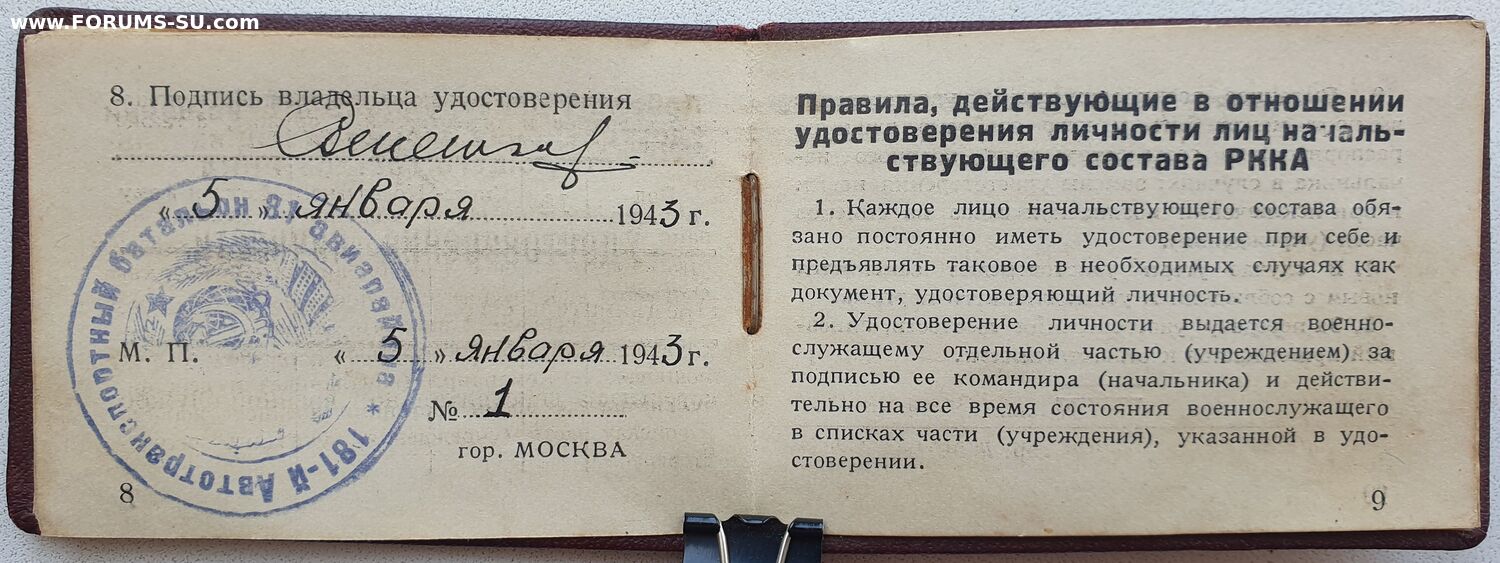 www.FORUMS-SU.com
8. Подпись владельца удостоверения
« 5 » января 1943 г.
М. П.
« 5 » января 1943 г.
№ 1
гор. МОСКВА
181-й Автотранспортный батальон
8
Правила, действующие в отношении
удостоверения личности лиц началь-
ствующего состава РККА
1. Каждое лицо начальствующего состава обя-
зано постоянно иметь удостоверение при себе и
предъявлять таковое в необходимых случаях как
документ, удостоверяющий личность.
2. Удостоверение личности выдается военно-
служащему отдельной частью (учреждением) за
подписью ее командира (начальника) и действи-
тельно на все время состояния военнослужащего
в списках части (учреждения), указанной в удо-
стоверении.
9